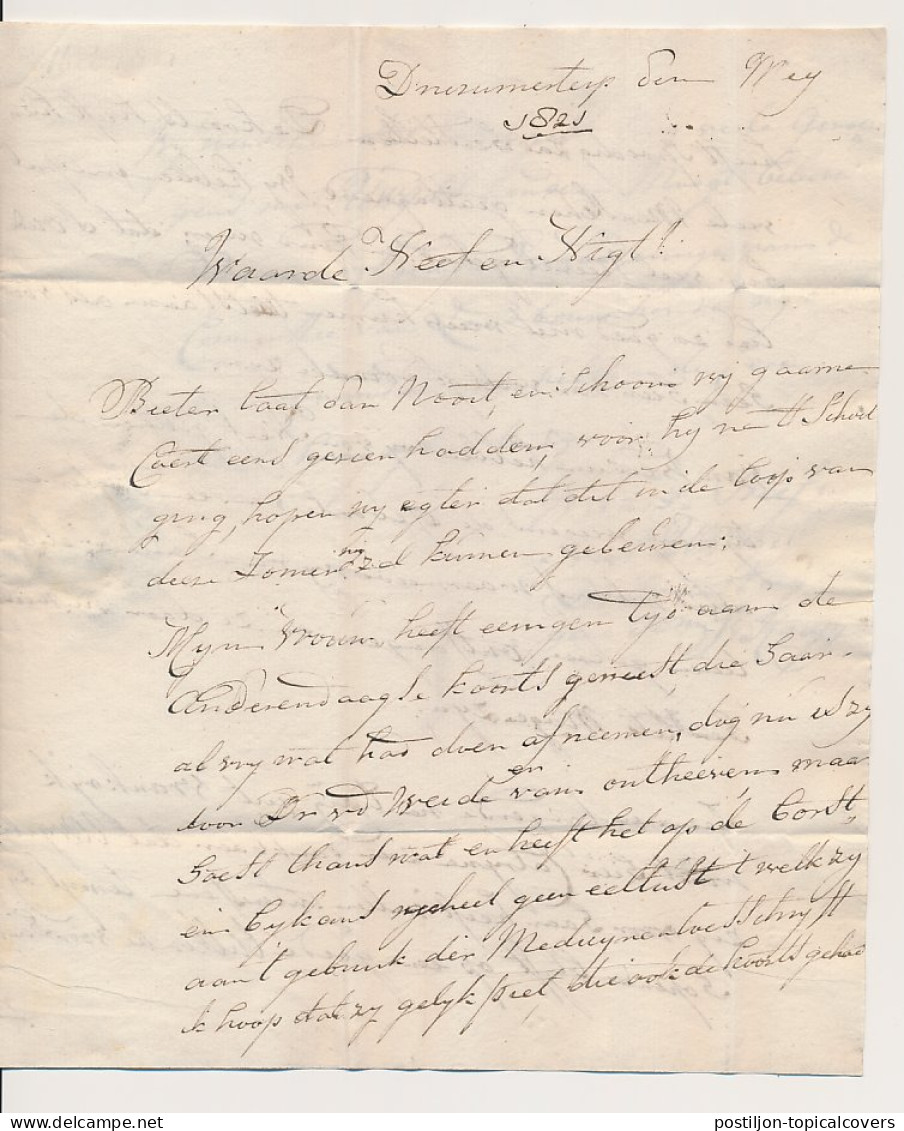 Driesumerterp den Mey
1821
Waarde Neef en Nigt!
Beeter laat dan Nooit, en schoon wij gaarne
Coert eens gezien hadden, voor hy na 't School
ging, hopen wy egter dat dit in de loop van
deese Zomer nog zal kunnen gebeuren;
Myn Vrouw heeft eenigen tyd aan de
Anderendaagse koorts geweest die haar
al vry wat had doen afneemen, dog nu is zy
door Dr. v.d Weide er van ontheeven, maar
hoest thans wat en heeft het op de borst,
en bykans geheel geen eetlust 't welk zy
aan 't gebruik der Medicynen toeschryft
ik hoop dat zy gelyk Piet, die ook de koorts gehad
postiljon-topicalcovers